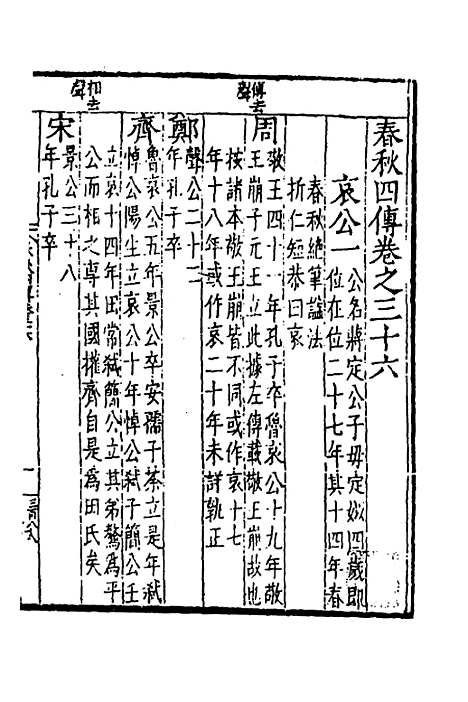 春秋四傳卷之三十六
哀公一
公名蔣定公子母定姒四歲即
位在位二十七年其十四年春
春秋絕筆謚法
折仁短恭曰哀
周
敬王四十一年孔子卒魯哀公十九年敬
王崩子元王立此據左傳載敬王崩故也
按諸本敬王崩皆不同或作哀十七
年十八年或作哀二十年未詳孰正
鄭
聲公二十二
年孔子卒
齊
魯哀公五年景公卒安孺子荼立是年弒
悼公陽生立哀公十年悼公弒子簡公壬
立哀十四年田常弒簡公立其弟驁為平
公而相之專其國權齊自是為田氏矣
宋
景公三十八
年孔子卒
傳去聲
相去聲